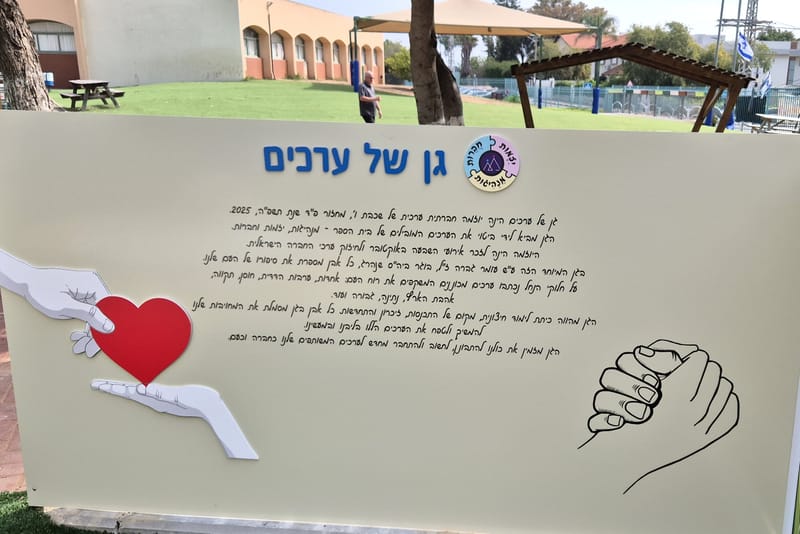 גן של ערכים
יזמות
חברות
מנהיגות
גן של ערכים הינה יוזמה חברתית ערכית של שכבת ו', מחזור פ"ד שנת תשפ"ה, 2025.
הגן מביא לידי ביטוי את הערכים המובילים של בית הספר - מנהיגות, יזמות וחברות.
היוזמה הינה לזכר אירועי השבעה באוקטובר ולחיזוק ערכי החברה הישראלית.
בגן המיוחד הזה ע"ש עומר גברה ז"ל, בוגר ביה"ס שנהרג, כל אבן מספרת את סיפורו של העם שלנו.
על חלוקי הנחל נכתבו ערכים מכוננים המשקפים את רוח העם: אחדות, ערבות הדדית, חוסן, תקווה,
אהבת הארץ, נתינה, גבורה ועוד.
הגן מהווה כיתת לימוד חיצונית, מקום של התכנסות, זיכרון והתחדשות. כל אבן בגן מסמלת את המחויבות שלנו
להמשיך ולטפח את הערכים הללו בליבנו ובמעשינו.
הגן מזמין את כולנו להתבונן, לחשוב ולהתחבר מחדש לערכים המשותפים שלנו כחברה וכעם.